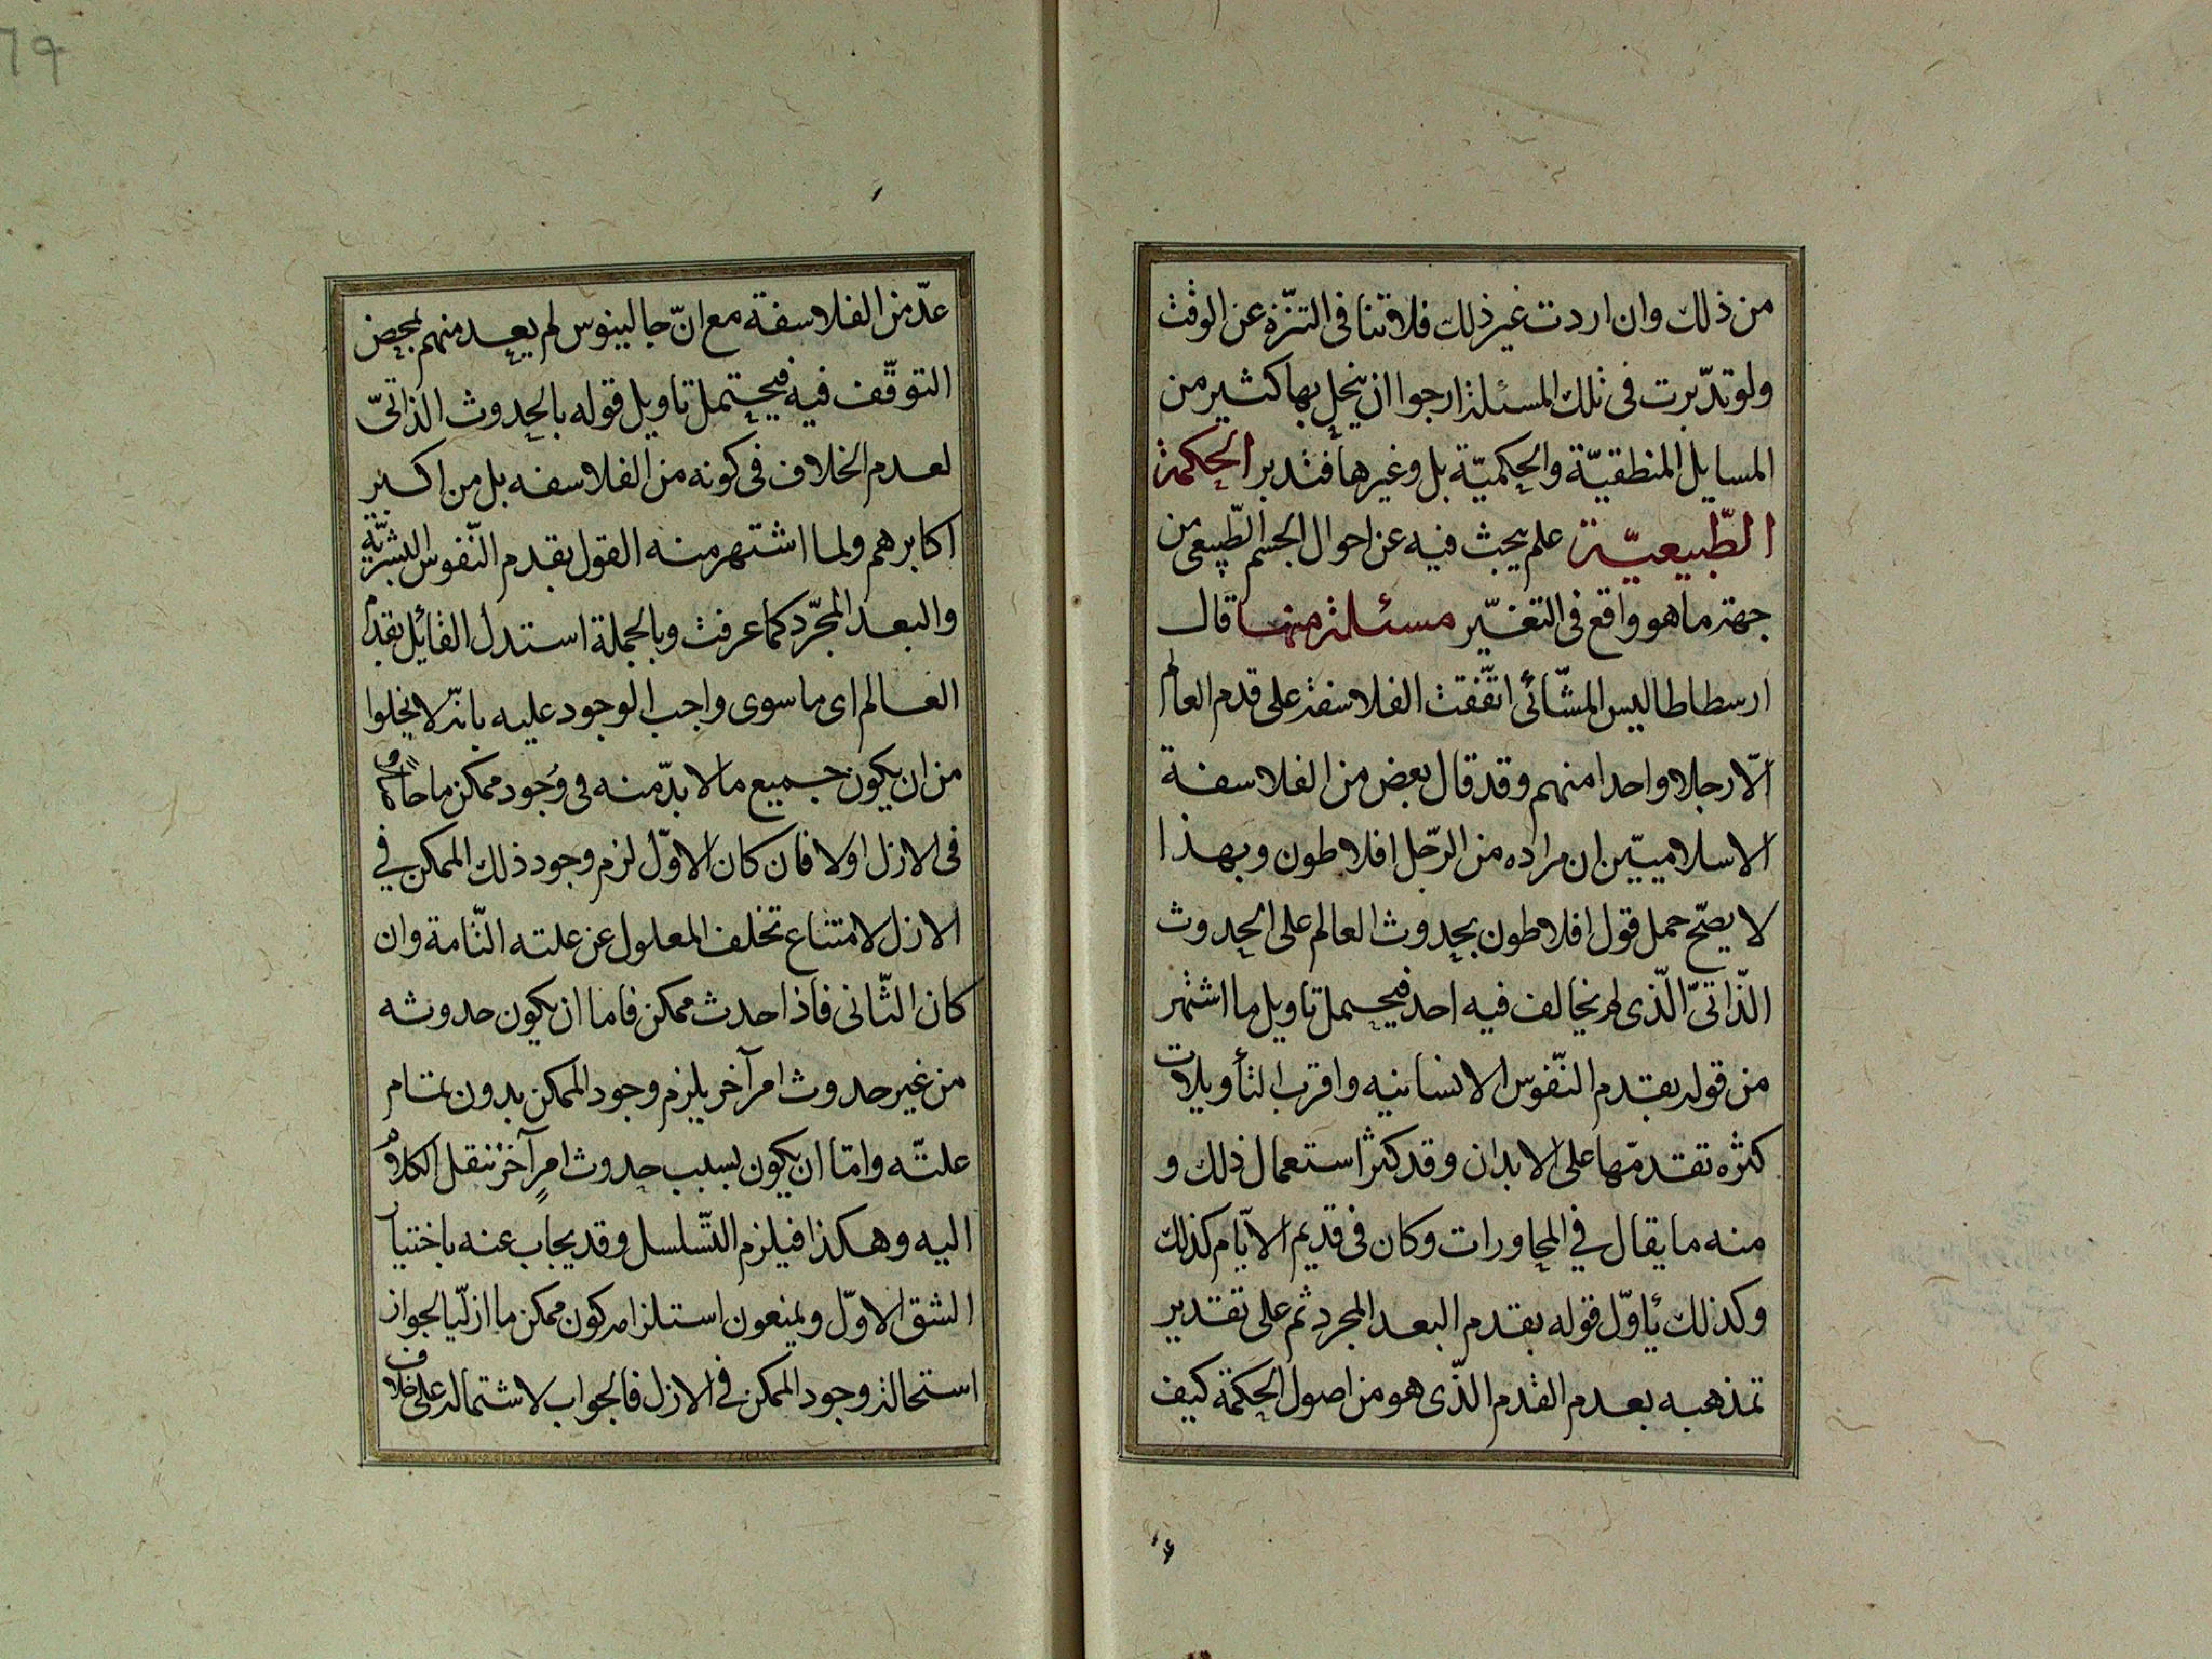 من ذلك وان اردت غير ذلك فلاقتنا فى التنزّه عن الوقت
ولو تدّبرت فى تلك المسئلة ارجوا ان ينحل بها كثير من
المسايل المنطقيّة والحكميّة بل وغيرها فتدبر الحكمة
الطّبيعيّة علم يبحث فيه عن احوال الجسم الطّبيعى من
جهة ما هو واقع فى التغيّير مسئلة منها قال
ارسطاطاليس المشّائى اتّفقت الفلاسفة على قدم العالم
الّا رجلا واحدا منهم وقد قال بعض من الفلاسفة
الاسلاميّين ان مراده من الرّجل افلاطون وبهذا
لا يصّح حمل قول افلاطون بحدوث العالم على الحدوث
الذّاتىّ الّذى لم يخالف فيه احد فيحتمل تاويل ما اشتهر
من قوله بقدم النّفوس الانسانيه واقرب التأويلات
كثره تقدمّها على الابدان وقد كثر استعمال ذلك و
منه ما يقال في المحاورات وكان فى قديم الايّام كذلك
وكذلك ياوّل قوله بقدم البعد المجرد ثم على تقدير
تمذهبه بعدم القدم الذّى هو من اصول الحكمة كيف
عدّ من الفلاسفة مع انّ جالينوس لم يعد منهم لمحض
التوقّف فيه فيحتمل تاويل قوله بالحدوث الذاتىّ
لعدم الخلاف فى كونه من الفلاسفه بل من اكبر
اكابرهم ولما اشتهر منه القول بقدم النّفوس البشريّة
والبعد المجّرد كما عرفت وبالجملة استدل القائل بقدم
العالم اى ما سوى واجب الوجود عليه بانّه لا يخلوا
من ان يكون جميع ما لا بدّ منه فى وجود ممكن ما حاصلا
فى الازل اولا فان كان الاوّل لزم وجود ذلك الممكن في
الازل لامتناع تخلف المعلول عن علته التّامة وان
كان الثّانى فاذا حدث ممكن فاما ان يكون حدوثه
من غير حدوث امر آخر يلزم وجود الممكن بدون تمام
علتّه وامّا ان يكون بسبب حدوث امرٍ آخر ننقل الكلام
اليه وهكذا فيلزم التّسلسل وقد يجاب عنه باختيار
الشق الاوّل ويمنعون استلزامه كون ممكن ما ازليّا لجواز
استحالة وجود الممكن في الازل فالجواب لاشتماله على خلاف